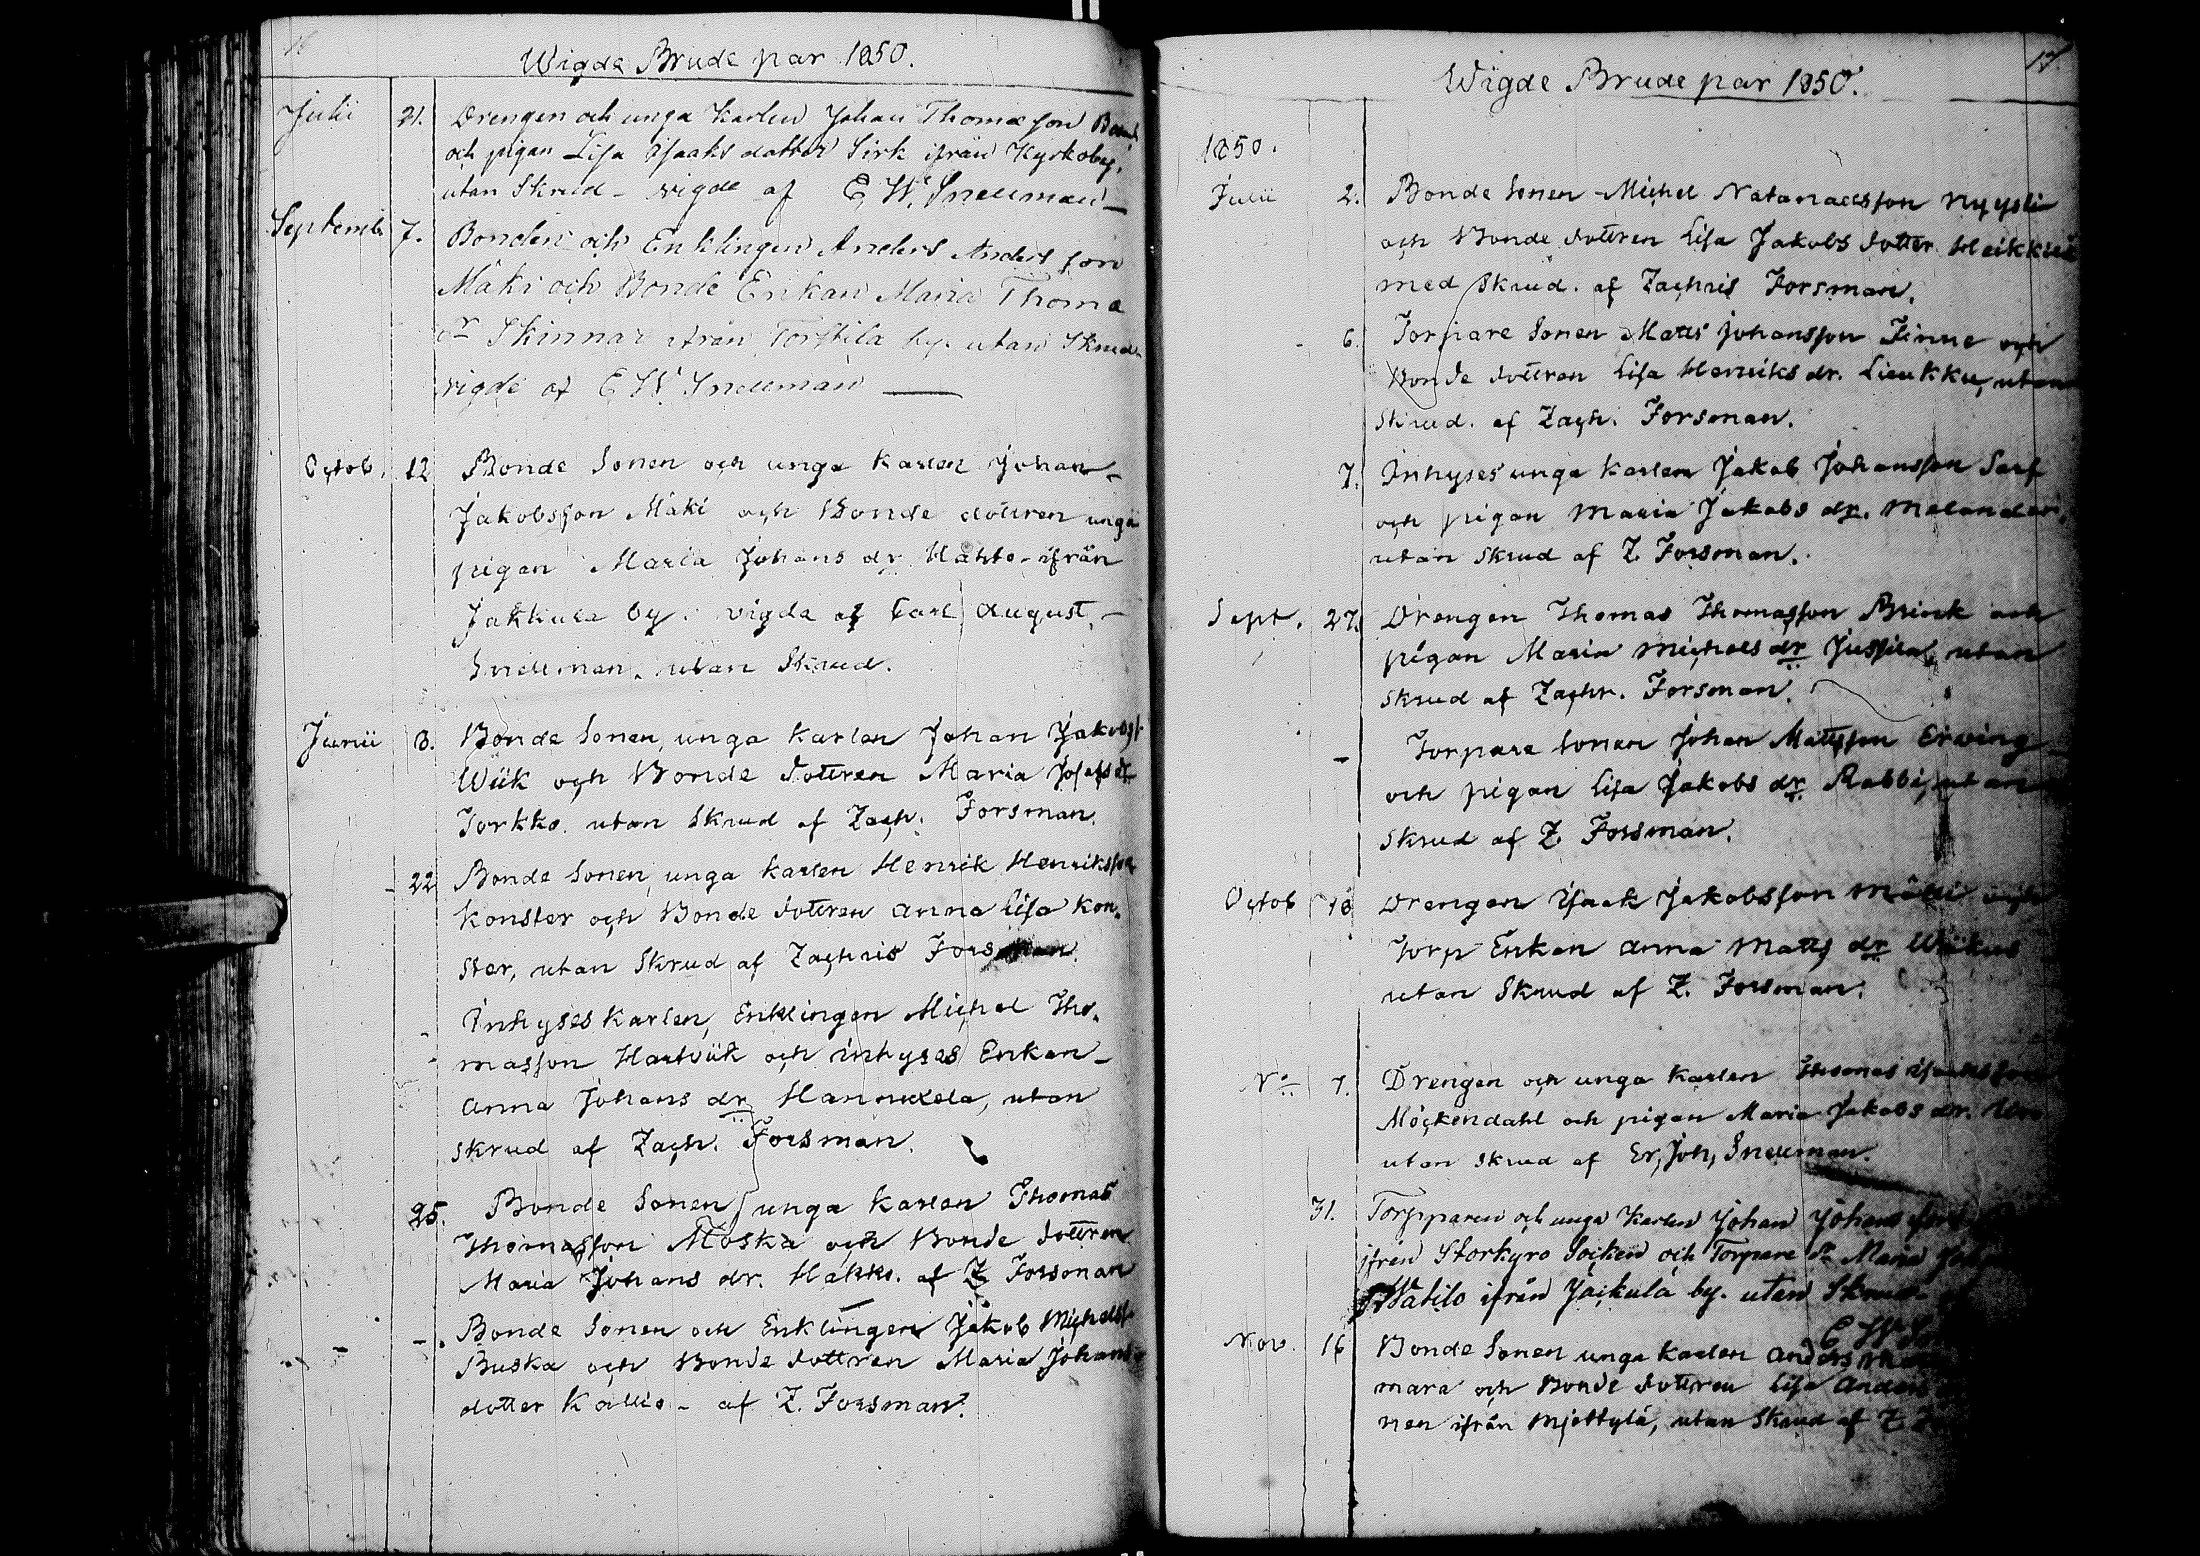 16
Wigda Brude par 1850.
Julii 21. Drengen och unga Karlen Johan Thomasson
och pigan Lisa Isaaks dotter Sirk ifrån Kyrkoby,
utan Skrud - vigde af E. W. Snellman -
Septemb. 7. Bonden och Enklingen Anders Andersson
Mäki och Bonde Enkan Maria Thomæ
dr Skinnar ifrån Torstila by. utan Skrud.
vigde af E. W. Snellman —
Octob. 12 Bonde Sonen och unga Karlen Johan
Jakobsson Mäki och Bonde dottren unga
pigan Maria Johans dr Hahto ifrån
Jakkula by. vigda af Carl August. -
Snellman. utan Skrud.
Junii 3. Bonde Sonen, unga Karlen Johan Jakobs s.
Wiik och Bonde dottren Maria Josefs dr
Torkko. utan Skrud af Zach. Forsman.
- 22 Bonde Sonen, unga karlen Henrik Henriksson
Konster och Bonde dottren Anna Lisa Kon-
ster, utan Skrud af Zachris Forsman.
- Inhyses Karlen, Enklingen Michel Tho-
masson Hartvik och inhyses Enkan -
Anna Johans dr Hannuxela, utan
skrud af Zach. Forsman.
25. Bonde Sonen, unga Karlen Thomas
Thomasson Moska och Bonde dottren
Maria Johans dr. Hakko. af Z Forsman
- . Bonde Sonen och Enklingen Jakob Michelss.
Buska och Bonde dottren Maria Johans
dotter Kallio - af Z. Forsman.
17.
Wigde Brude par 1850.
1850.
Julii 2. Bonde Sonen Michel Natanaelsson Nyysti
och Bonde dottren Lisa Jakobs dotter Heikkilä
med Skrud. af Zachris Forsman.
- 6. Torpare Sonen Matts Johansson Finne och
Bonde dottren Lisa Henriks dr. Liukku, utan
Skrud. af Zach. Forsman.
7. Inhyses unga karlen Jakob Johansson Sarf
och pigan Maria Jakobs dr. Melander.
utan Skrud af Z Forsman.
Sept. 27. Drengen Thomas Thomasson Brink och
pigan Maria Michels dr Jussila, utan
skrud af Zachr. Forsman.
- Torpare Sonen Johan Mattsson Erving
och pigan Lisa Jakobs dr. Rabbi, utan
Skrud af Z Forsman.
Octob 18 Drengen Isack Jakobsson och
Torp Enkan Anna Matts dr
utan Skrud af Z. Forsman.
No 7. Drengen och unga Karlen Thomas Isaksson
Möckendahl och pigan Maria Jakobs dr.
utan Skrud af Er, Joh, Snellman.
31. Torpparen och unga Karlen Johan Johansson
ifrån Storkyro Socken och Torpare dr Maria
Wätilo ifrån Jackula by. utan Skrud
E W
Nov. 16 Bonde Sonen unga karlen Anders
mara och Bonde dottren Lisa Anders
nen ifrån Mjottylä, utan Skrud af Z